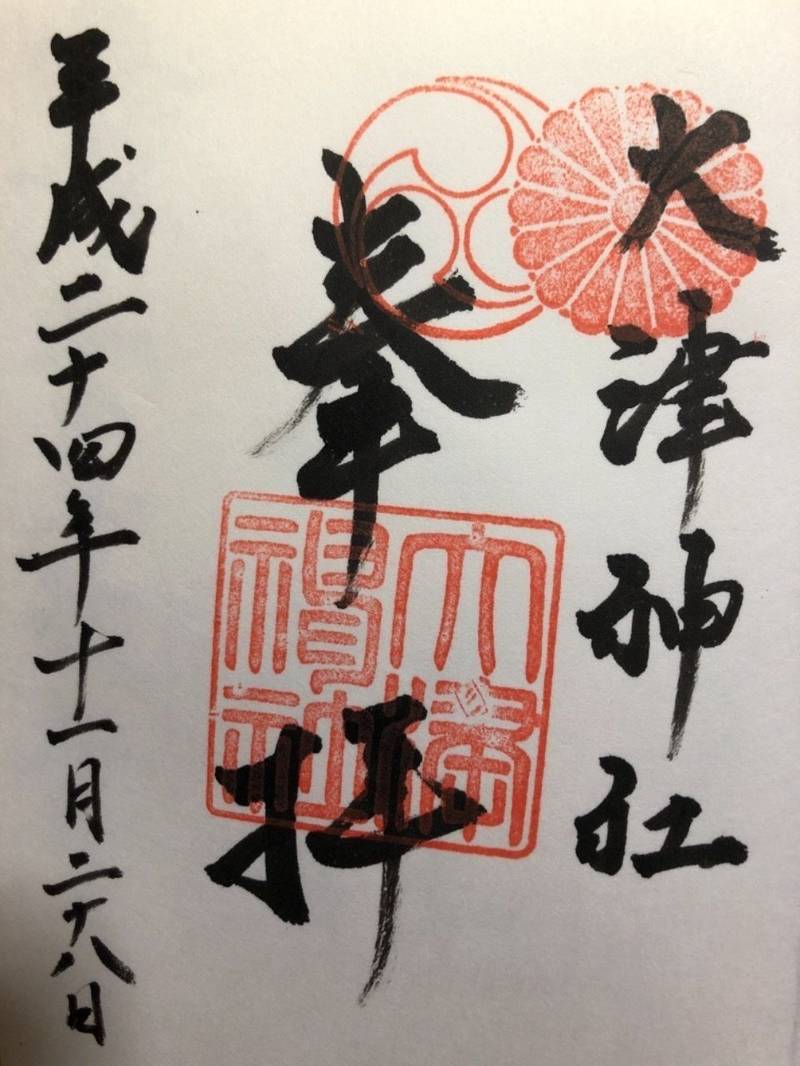 大津神社
奉拝
大津神社
平成二十四年十一月二十八日